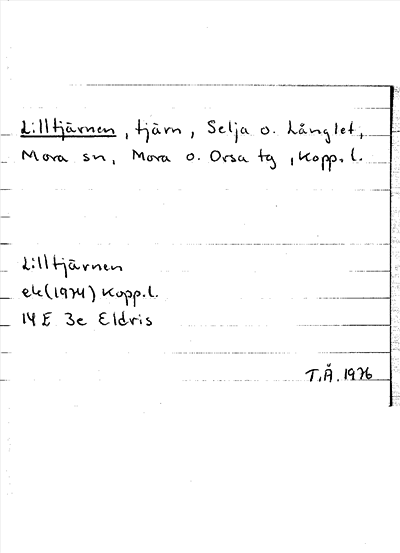 Lilltjärnen, tjärn, Selja o. Långlet,
Mora sn, Mora o. Orsa tg, Kopp. l.
Lilltjärnen
ek(1974) Kopp.l.
14 E 3e Eldris
T.Å. 1976